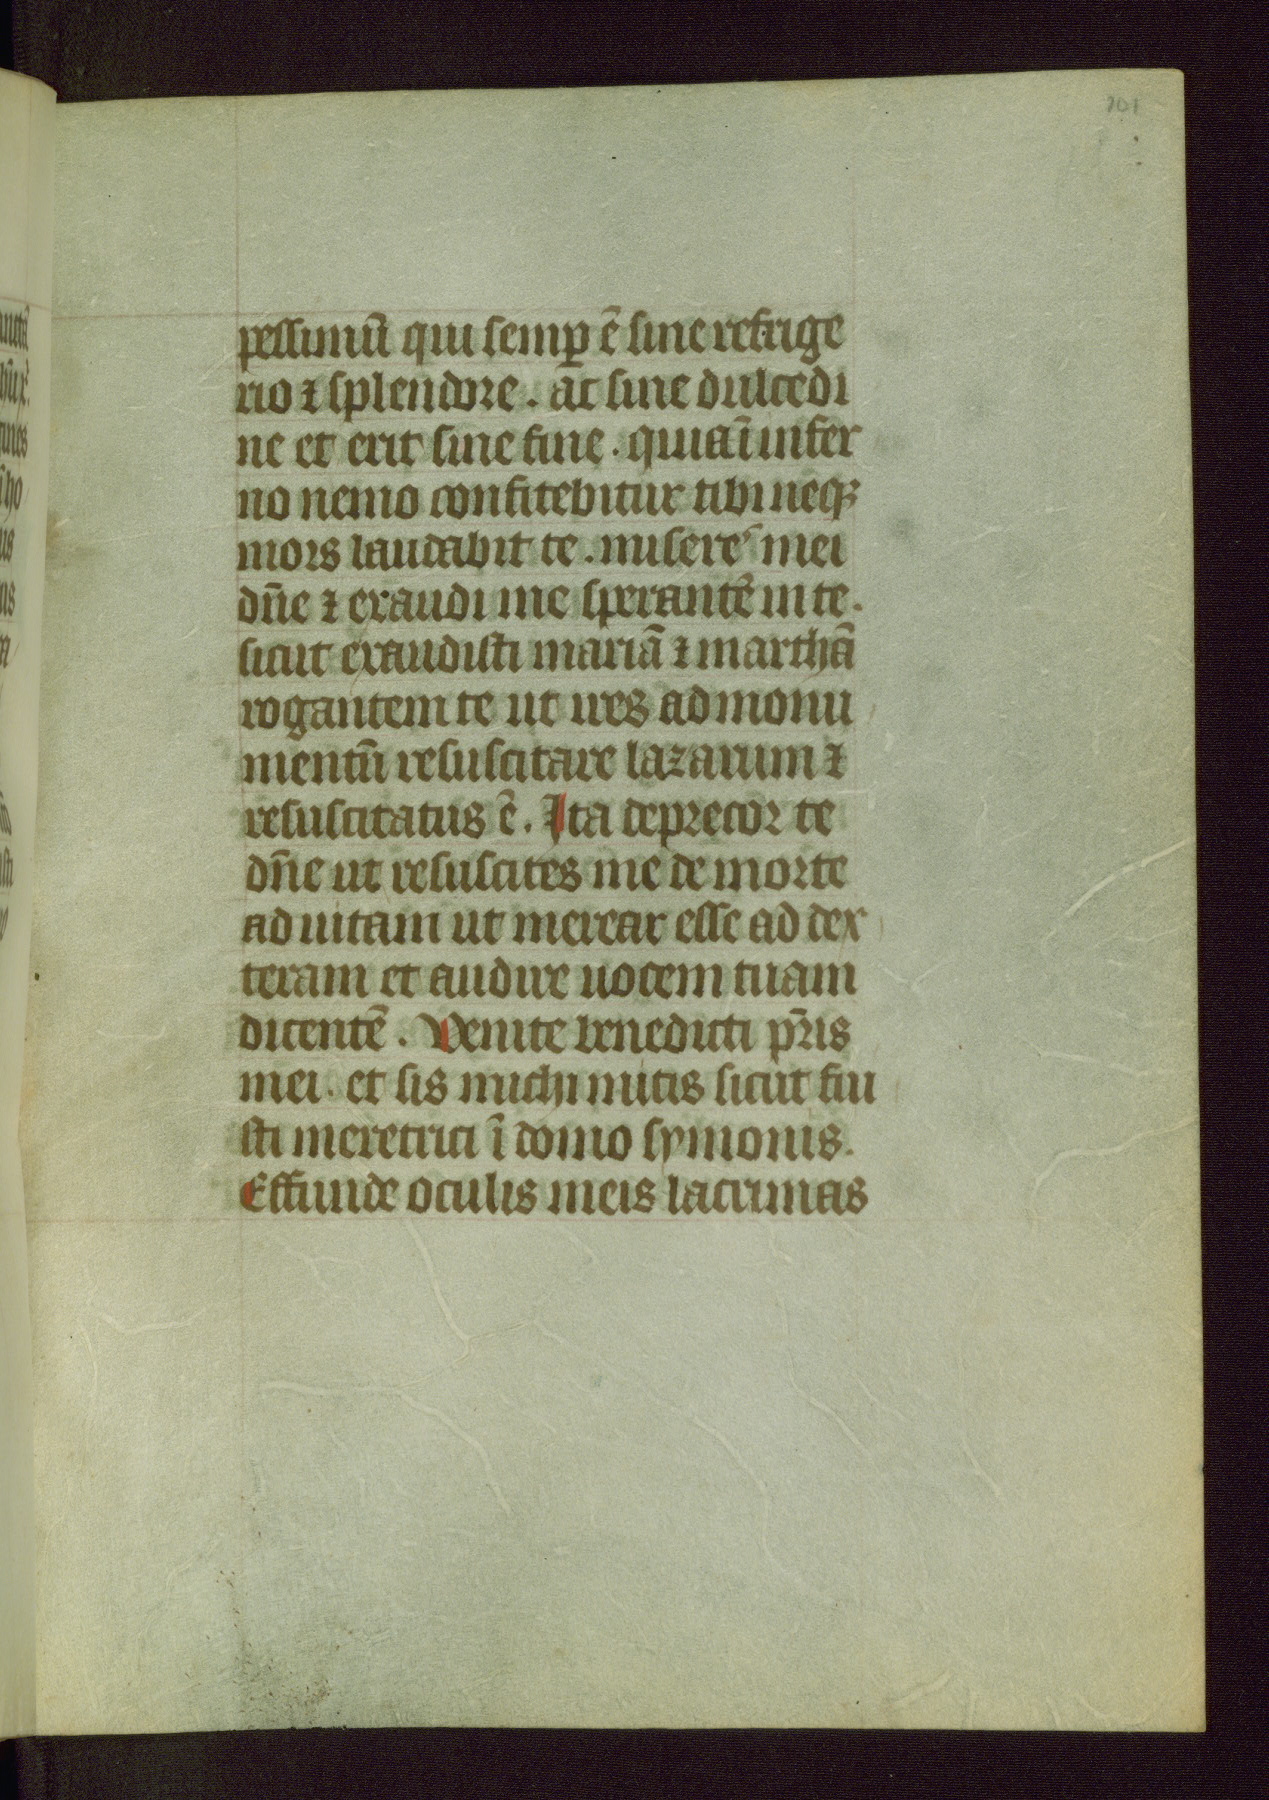 101
pessimū qui semꝑ ē sine refrige
rio ⁊ splendore . ac sine dulcedi
ne et erit sine fine . quia ī infer
no nemo confitebitur tibi neqꝫ
mors laudabit te . misere᷒ mei
dn̄e ⁊ exaudi me sperantē in te .
sicut exaudisti mariā ⁊ marthā
rogantem te ut ires ad monu
mentū resuscitare lazarum ⁊
resuscitatus ē . Ita deprecor te
dn̄e ut resuscites me de morte
ad uitam ut merear esse ad dex
teram et audire uocem tuam
dicentē . Venite benedicti pr̄is
mei . et sis michi mitis sicut fui
sti meretrici ī domo symonis .
Effunde oculis meis lacrimas